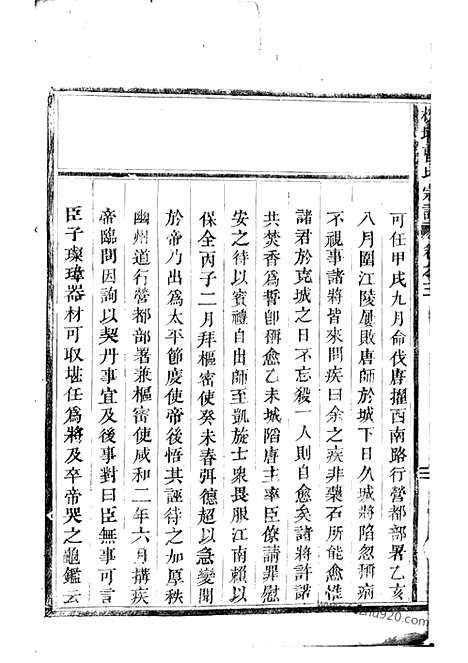 曹氏宗譜 卷之三
可任甲戌九月命伐唐擢西南路行營都部署乙亥
八月圍江陵屢敗唐師於城下日久城將陷忽稱病
不視事諸將皆來問疾曰余之疾非藥石所能愈惟
諸君於克城之日不忘殺一人則自愈矣諸將許諾
共焚香為誓卽稱愈乙未城陷唐主率臣僚請罪慰
安之待以賓禮自出師至凱旋士衆畏服江南賴以
保全丙子二月拜樞密使癸未春弭德超以急變聞
於帝乃出為太平節度使帝後悟其誣待之加厚秩
幽州道行營都部署兼樞密使咸和二年六月搆疾
帝臨問因詢以契丹事宜及後事對曰臣無事可言
臣子璨瑋器材可取堪任為將及卒帝哭之龜鑑云